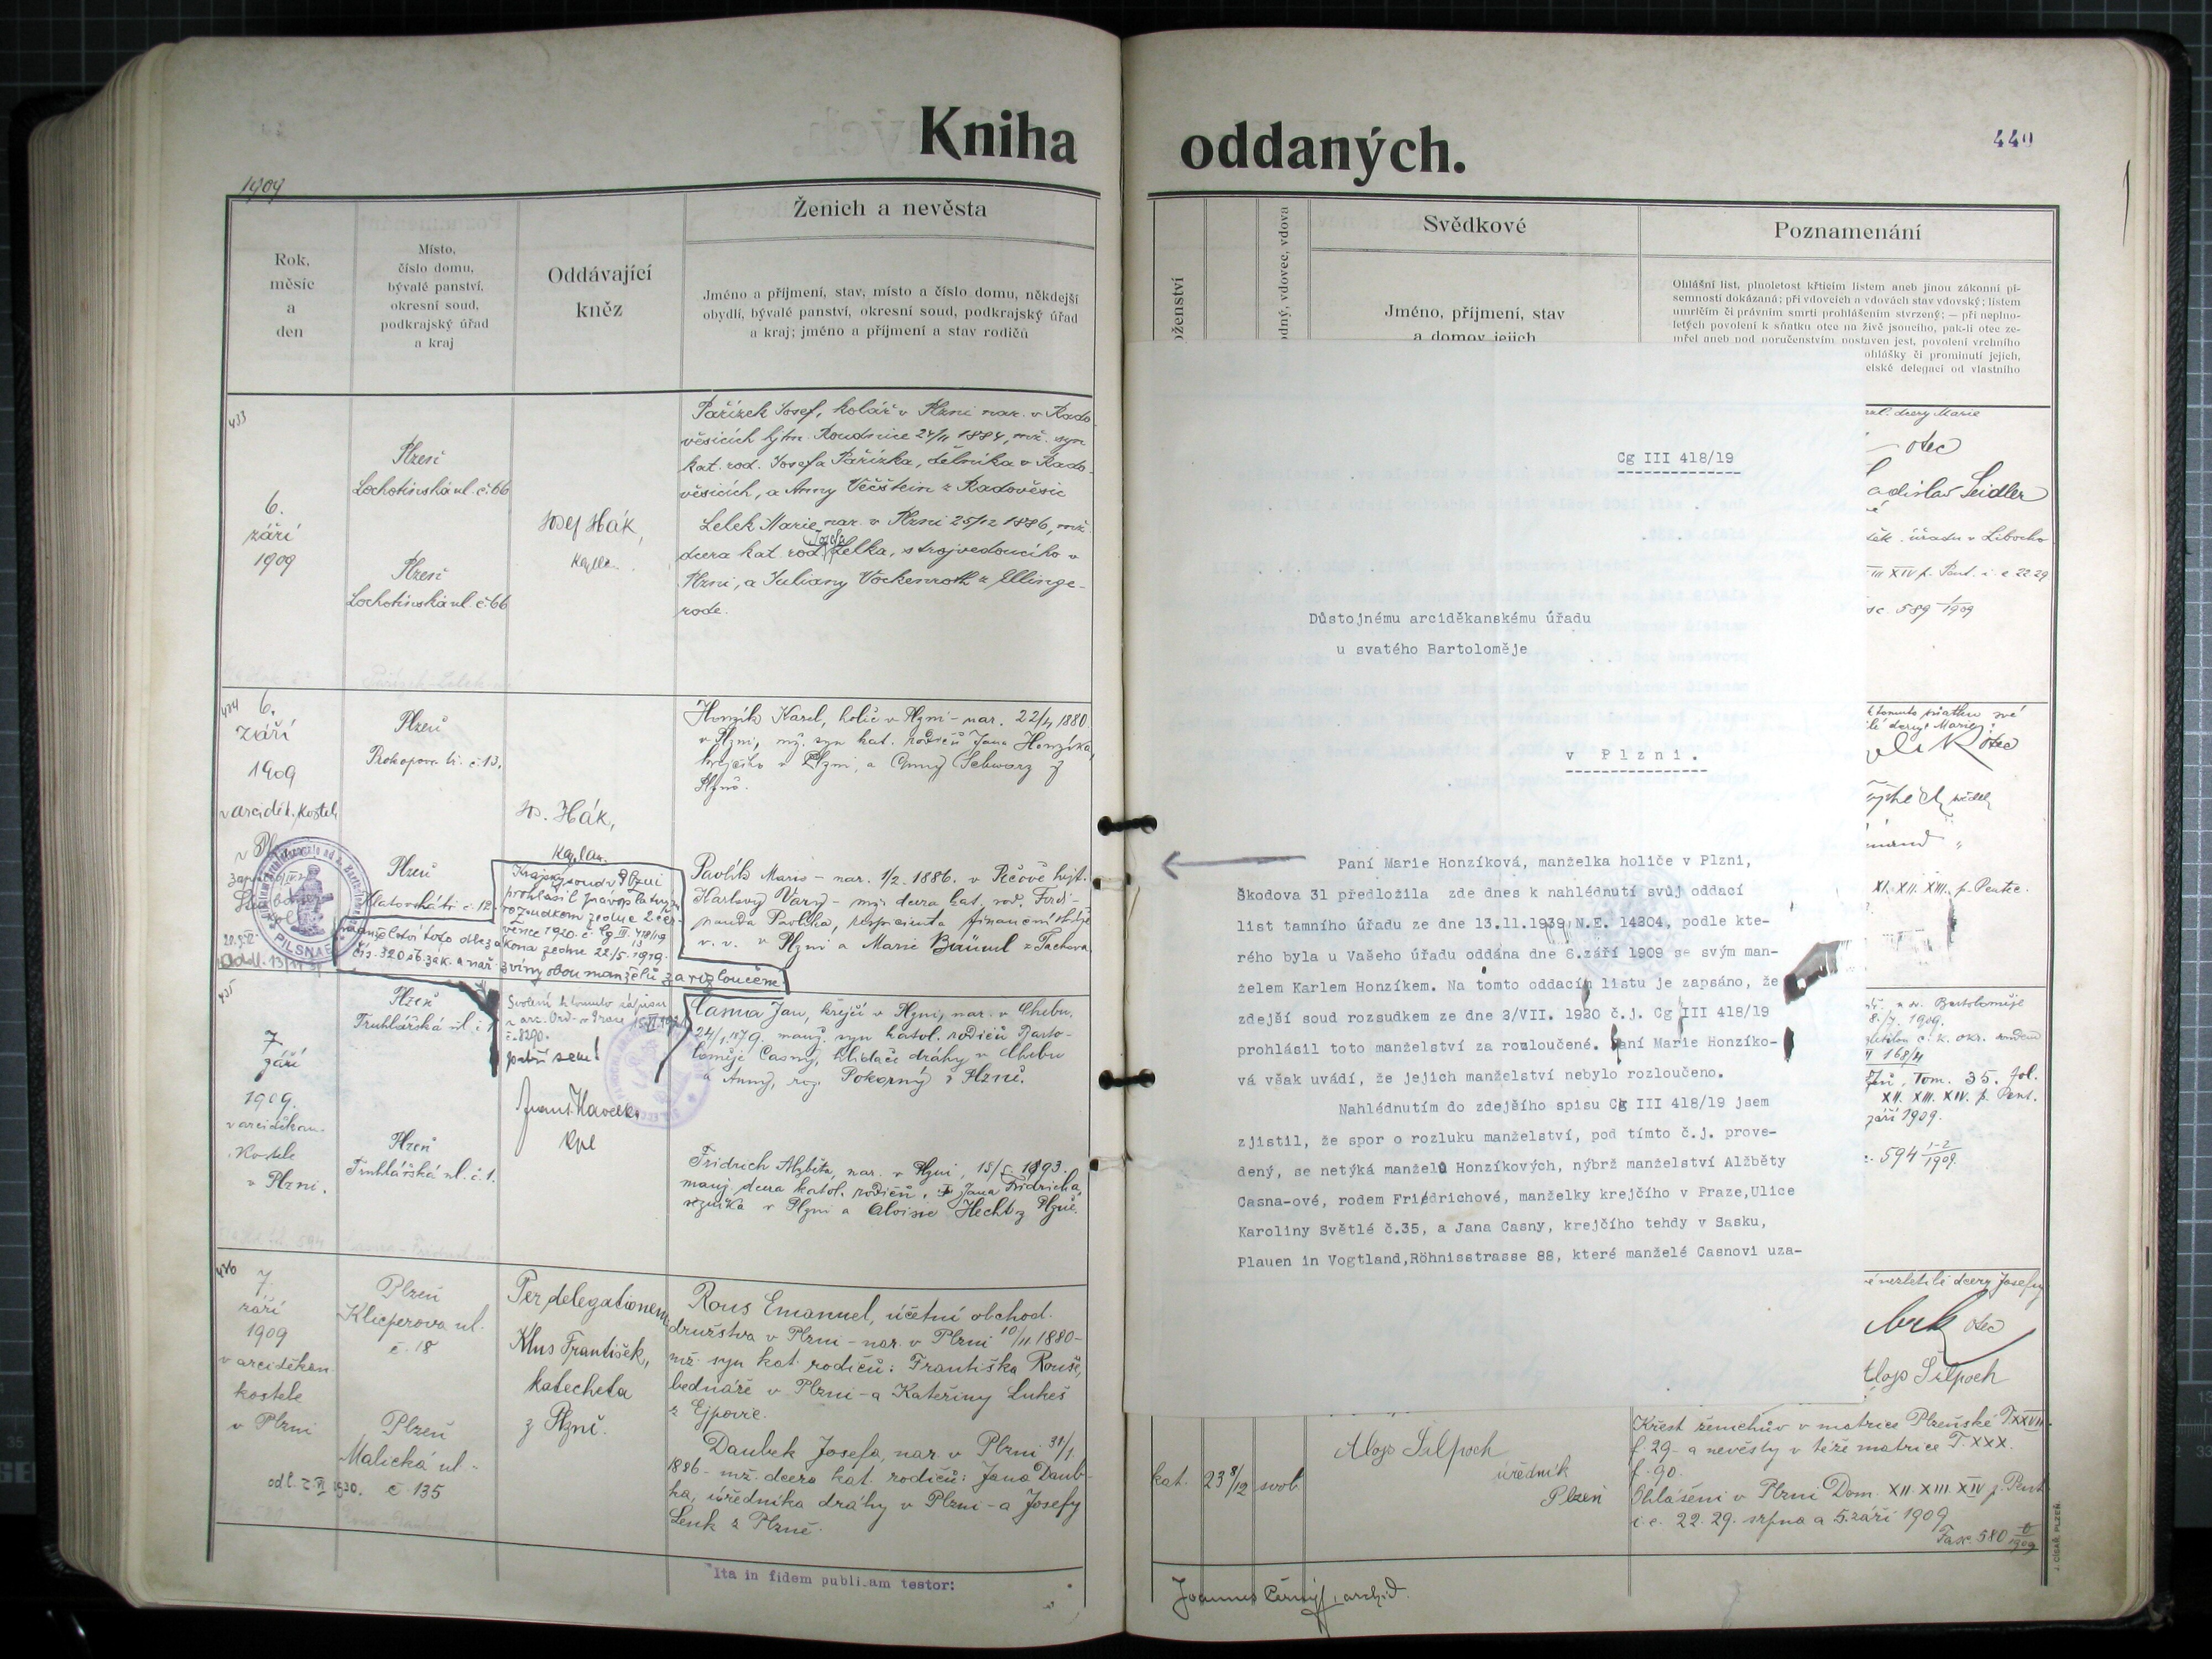 Kniha
oddaných.
440
1909
Rok,
měsíc
a
den
Místo,
číslo domu,
bývalé panství,
okresní soud,
podkrajský úřad
a kraj
Oddávající
kněz
Ženich a nevěsta
Jméno a příjmení, stav, místo a číslo domu, někdejší
obydlí, bývalé panství, okresní soud, podkrajský úřad
a kraj; jméno a příjmení a stav rodičů
433
6.
září
1909
Plzeň
Lochotínská ul. č. 66
Plzeň
Lochotínská ul. č. 66
Josef Hák,
kaplan.
Pařízek Josef, kolář v Plzni nar. v Rado-
věsicích hjtm. Roudnice 24/11 1884, mž. syn
kat. rod. Josefa Pařízka, dělníka v Rado-
věsicích, a Anny Večštein z Radověsic
Lelek Marie nar. v Plzni 25/12 1886, mž.
dcera kat. rod. Josefa Lelka, strojvedoucího v
Plzni, a Juliany Vockenroth z Ellinge-
rode.
434
6.
září
1909
v arciděk. kostele
v Pl
Plzeň
Prokopova tř. č. 13.
Plzeň
Klatovská tř. č. 12.
Jos. Hák,
kaplan.
Honzík Karel, holič v Plzni - nar. 22/4 1880
v Plzni, mž. syn kat. rodičů Jana Honzíka,
krejčího v Plzni, a Anny Schwarz z
Plzně.
Pavlík Marie - nar. 1/2 1886. v Pečově hejt.
Karlovy Vary - mž. dcera kat. rod. Ferdi-
nanda Pavlíka, respicienta finanční stráže
v. v. v Plzni a Marie Bäuml z Tachova
Krajský soud v Plzni
prohlásil právoplatným
rozsudkem ze dne 2. čer-
vence 1920. č. Cg III. 418/19
manželství toto dle zákona ze dne 22/5. 1919.
čís. 320 sb. zák. a nař. z viny obou manželů za rozloučené.
PILSNAE
435
7.
září
1909.
v arciděkan.
kostele
v Plzni.
Plzeň
Truhlářská ul. č. 1
Plzeň
Truhlářská ul. č. 1.
Svolení k tomuto zápisu
č. 8290.
patří sem!
Frant. Havelka
kpl
Casna Jan, krejčí v Plzni, nar. v Chebu
24/1. 1879. manž. syn katol. rodičů Barto-
loměje Casny, hlídače dráhy v Chebu
a Anny, roz. Pokorný z Plzně.
Fridrich Alžběta, nar. v Plzni, 15/5 1893.
manž. dcera katol. rodičů, Jana Fridricha,
řezníka v Plzni a Aloisie Hecht z Plzně.
436
7.
září
1909
v arciděkan.
kostele
v Plzni
Plzeň
Klicperova ul.
č. 18
Plzeň
Malická ul. -
č. 135
Per delegationem
Klus František,
katecheta
z Plzně.
Rous Emanuel, účetní obchod.
družstva v Plzni - nar. v Plzni 10/11 1880 -
mž. syn kat. rodičů: Františka Rouse,
bednáře v Plzni - a Kateřiny Lukeš
z Ejpovic.
Daubek Josefa, nar. v Plzni 31/1.
1886 - mž. dcera kat. rodičů: Jana Daub-
ka, úředníka dráhy v Plzni - a Josefy
Lenk z Plzně.
Ita in fidem publicam testor:
oženství
odný, vdovec, vdova
Svědkové
Jméno, příjmení, stav
a domov jejich
Poznamenání
Ohlášní list, plnoletost křticím listem aneb jinou zákonní pí-
semností dokázaná; při vdovcích a vdovách stav vdovský; listem
umrlčím či právním smrti prohlášením stvrzený; — při neplno-
letých povolení k sňatku otce na živě jsoucího, pak-li otec ze-
mřel aneb pod poručenstvím postaven jest, povolení vrchního
ohlášky či prominutí jejich,
elské delegaci od vlastního
Cg III 418/19
Důstojnému arciděkanskému úřadu
u svatého Bartoloměje
v Plzni.
Paní Marie Honzíková, manželka holiče v Plzni,
Škodova 31 předložila zde dnes k nahlédnutí svůj oddací
list tamního úřadu ze dne 13.11.1939, N.E. 14304, podle kte-
rého byla u Vašeho úřadu oddána dne 6.září 1909 se svým man-
želem Karlem Honzíkem. Na tomto oddacím listu je zapsáno, že
zdejší soud rozsudkem ze dne 3/VII. 1920 č.j. Cg III 418/19
prohlásil toto manželství za rozloučené. Paní Marie Honzíko-
vá však uvádí, že jejich manželství nebylo rozloučeno.
Nahlédnutím do zdejšího spisu Cg III 418/19 jsem
zjistil, že spor o rozluku manželství, pod tímto č.j. prove-
dený, se netýká manželů Honzíkových, nýbrž manželství Alžběty
Casna-ové, rodem Friedrichové, manželky krejčího v Praze,Ulice
Karoliny Světlé č.35, a Jana Casny, krejčího tehdy v Sasku,
Plauen in Vogtland,Röhnisstrasse 88, které manželé Casnovi uza-
dcery Marie
otec
adislav Seidler
úřadu v Libocho
589 1909
otec
XI. XII. XIII. p. Pentec.
Bartoloměje
8./7. 1909.
č. k. okr. soudem
Tom. 35. fol.
XII. XIII. XIV. p. Pent.
září 1909.
594 1-2/1909.
nezletilé dcery Josefy
otec
Alojs Silpoch
kat.
23 8/12
svob.
Alojs Silpoch
úředník
Plzeň
Křest ženichův v matrice Plzeňské T. XXVII.
f. 29 - a nevěsty v téže matrice T. XXX.
f. 90.
Ohlášeni v Plzni Dom. XII. XIII. XIV p. Pent
i. e. 22. 29. srpna a 5. září 1909
Fasc. 580
Joannes Černý, archid.
J. CÍSAŘ, PLZEŇ.